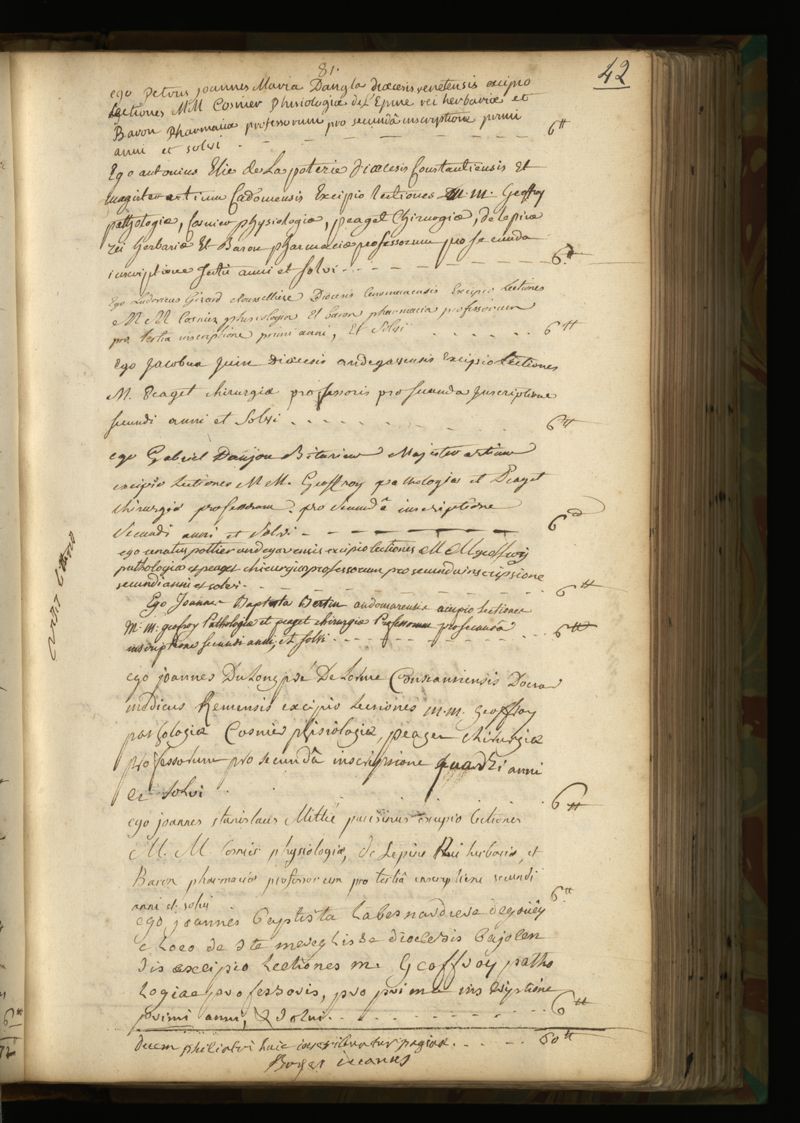 81.
42
ego petrus joannes Maria Dangla diœcesis venetensis excipio
lectiones M.M. Cosnier Phisiologiæ de L'Epine rei herbariæ et
Baron pharmaciæ professorum pro secunda inscriptione primi
anni et solvi 6tt
Ego antonius Elie de La poterie diœcesis Constantiensis Et
magister artium Cadomensis Excipio lectiones M.M. Geoffroy
pathologiæ, cosnier physiologiæ, peaget Chirurgiæ, de lepine
rei herbariæ Et Baron pharmaciæ professorum pro secunda
inscriptione tertii anni et solvi 6tt
Ego Ludovicus Girard Diœcesis Cenomanensis Excipio Lectiones
M M Cosnier physiologiæ Et baron pharmaciæ professorum
pro tertia inscriptione primi anni, Et Solvi 6tt
Ego Jacobus Juin Diœcesis andegavensis Excipio Lectiones
M. Peaget chirurgiæ professoris pro secunda Inscriptione
secundi anni et Solvi 6tt
ego Gabriel Danjou Bituricus Magister artium
excipio Lectiones M M. Geoffroy pathologiæ et Peaget
chirurgiæ professorum pro secundâ inscriptione
secundi anni et Solvi 6tt
ego renatus pottier andegavensis excipio lectiones M M geoffroy
pathologiæ et peaget chirurgiæ professorum pro secunda inscriptione
secundi anni et solvi 6tt
Ego Joannes Baptista Bertin audomarensis excipio Lectiones
M.M. geofroy Pathologiæ et peaget chirurgiæ Professorum pro secundâ
inscriptione secundi anni, et solvi 6tt
ego joannes Dulongpré Delorme Constantiensis Doctor
medicus Remensis excipio Lectiones M.M. Geoffroy
pathologiæ Cosnier phisiologiæ, peaget chirurgiæ
professorum pro secundâ inscriptione quarti anni
et solvi 6tt
ego joannes stanislaus Mittié parisinus excipio lectiones
M. M. Cosnier physiologiæ, de Lepine Rei herbariæ, et
Baron pharmaciæ professorum pro tertiâ inscriptione secundi
anni et solvi 6tt
ego joannes baptista labernardiere degouéy
e loco de ste diocesis bajocen
sis excipio lectiones m. Geoffroy patho
logiae professoris, pro prima inscriptione
primi anni, & solvi 6tt
decem philiatri huic inscribuntur paginæ 60tt
Boyer decanus